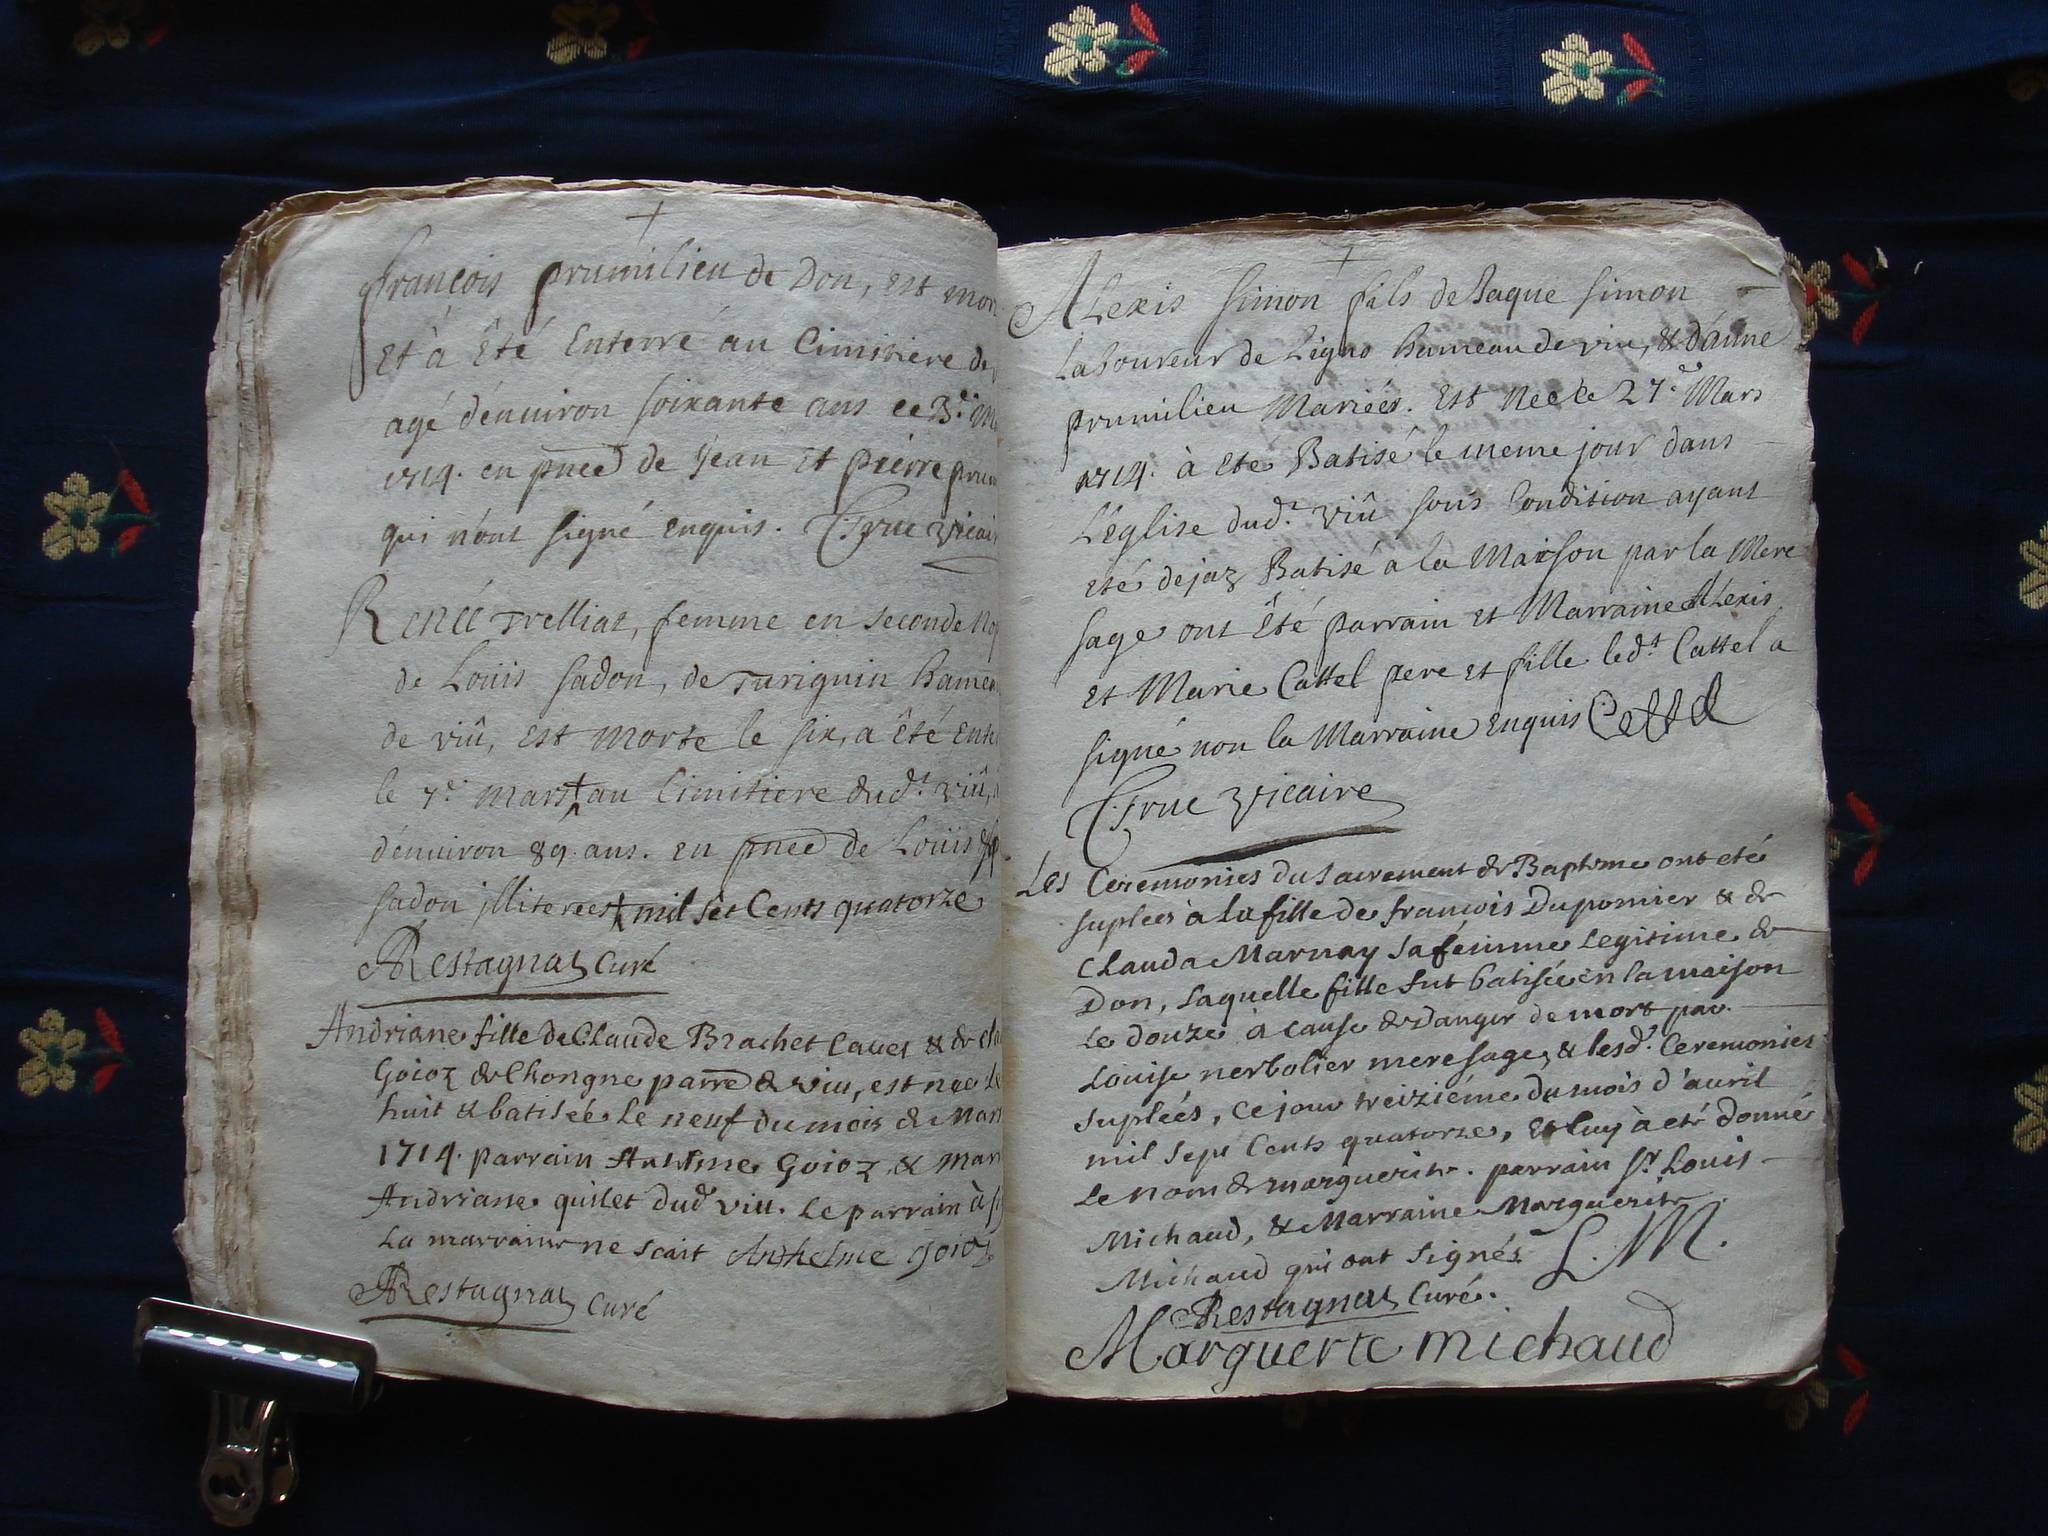 +
francois prumilieu de Don, est mor
et à êté Enterré au Cimitiere de
agé d'enuiron soixante ans ce 3.e
1714. en pnce de Jean et pierre prum
qui n'ont signé enquis. Truc vicai
Renée Trelliat, femme en seconde No
de Loüis sadon, de Turignin hamea
de viû, est Morte le six, a êté Ente
le 7.e mars + au Cimitiere dud.t viû,
d'enuiron 89 ans. en pnce de Loüis
sadon jlliterées + mil set Cents quatorze
Restagnat Curé
Andriane fille De Claude Brachet Cauet & de cla
Goioz de Chongne parre de viu, est nee Le
huit & batiseé Le neuf du mois de Mars
1714. parrain Antelme Goioz & Mar
Andriane quilet dud viu. Le parrain à si
La marraine ne scait Anthelme goioz
Restagnat Curé
+
ALexis simon fils de Jaque simon
Laboureur de Ligno hameau de viu, & d'anne
prumilieu Mariées. Est Neé le 27.e Mars
1714. à ete Batisé le meme jour dans
L'eglise dud.t viû sous Condition ayant
eté dejaz Batisé a la Maison par la Mere
sage ont Êté parrain et Marraine ALexis
et Marie Cattel pere et fille led.t Cattel a
signé non la Marraine enquis Cattel
Truc vicaire
Les Ceremonies du sacrement de Baptsme ont eté
supleés à La fille de francois Dupomier & de
Clauda Marnay sa femme Legitime de
Don, Laquelle fille fut batiseé en la maison
Le Douze à cause de Danger de mort par
Louise nerbolier mere sage, & lesd. Ceremonies
supleés, ce jour treiziéme du mois d'auril
mil sept Cents quatorze, et luy à eté donné
Le nom de marguerite. parrain sr Louis
Michaud, & Marraine Marguerite
Michaud qui ont signés L. M.
Restagnat Curé.
Marguerte michaud